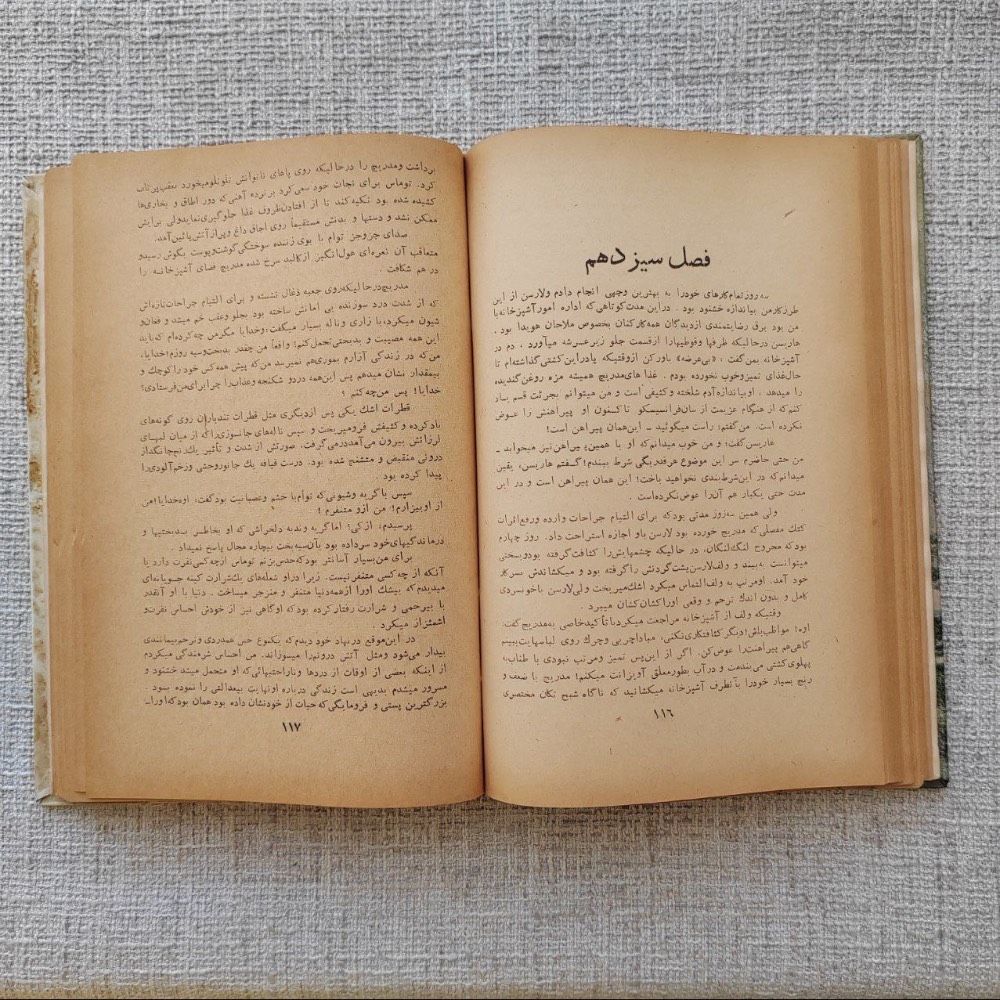 فصل سیزدهم
سه روز تمام کارهای خودرا به بهترین وجهی انجام دادم ولارسن از این
طرز کار من بیاندازه خشنود بود . دراین مدت کوتاهی که اداره امور آشپزخانه با
من بود برق رضایتمندی ازدیدگان همه کارکنان بخصوص ملاحان هویدا بود .
هاریسن درحالیکه ظرفها وقوطیهارا ازقسمت جلو زیرعرشه میآورد ، دم در
آشپزخانه بمن گفت ، «بی‌عرضه» باورکن ازوقتیکه پادراین کشتی گذاشته‌ام تا
حال غذای تمیزوخوب نخورده بودم . غذا های مدریج همیشه مزه روغن گندیده
را میدهد . اوبیاندازه آدم شلخته و کثیفی است و من میتوانم بجرئت قسم یاد
کنم که از هنگام عزیمت از سان فرانسیسکو تاکنون او پیراهنش را عوض
نکرده است. من گفتم؛ راست میگوئید ـ این همان پیراهن است!
هاریسن گفت؛ و من خوب میدانم که او با همین پیراهن نیز میخوابد ـ
من حتی حاضرم سر این موضوع هرقدربگی شرط ببندم! گفتم هاریس، یقین
میدانم که در این شرط‌بندی نخواهید باخت! این همان پیراهن است و در این
مدت حتی یکبار هم آن را عوض نکرده است .
ولی همین سه روز مدتی بود که برای التیام جراحات وارده ورفع اثرات
کتک مفصلی که مدریج خورده بود لارسن باو اجازه استراحت داد. روز چهارم
بود که مجروح لنگ‌لنگان، در حالیکه چشمهایش را کثافت گرفته بود وبسختی
میتوانست به بیند و ولف لارسن پشت گردنش را گرفته بود و میکشاندش سرکار
خود آمد. اومرتب به ولف التماس میکرد اشک میریخت ولی لارسن باخونسردی
کامل و بدون اندک ترحم و وقعی اورا کشان کشان میبرد .
وقتیکه ولف از آشپزخانه مراجعت میکرد با تأکید خاصی به مدریج گفت
اوه! مواظب باش! دیگر کثافتکاری نکنی، مبادا چربی وچرک روی لباسهایت ببینم
گاهی هم پیراهنت را عوض کن. اگر از این پس تمیز ومرتب نبودی با طناب،
پهلوی کشتی می‌بندمت و در آب بطور معلق آویزانت میکنم! مدریج با ضعف و
رنج بسیار خودرا بآنطرف آشپزخانه میکشانید که ناگاه شبح تکان مختصری
۱۱۶
برداشت ومدریج را درحالیکه روی پاهای ناتوانش تلوتلو میخورد بعقب پرتاب
کرد. توماس برای نجات خود سعی کرد بر نرده آهنی که دور اطاق و بخاری‌ها
کشیده شده بود تکیه کند تا از افتادن ظروف غذا جلوگیری نماید ولی برایش
ممکن نشد و دستها و بدنش مستقیماً روی اجاق داغ وپرازآتش پائین آمد.
صدای جزوجز توام با بوی زننده سوختگی گوشت وپوست بگوش رسید و
متعاقب آن نعره‌ای هول‌انگیز ازکالبد سرخ شده مدریج فضای آشپزخانه را
در هم شکافت .
مدریج درحالیکه روی جعبه ذغال نشسته و برای التیام جراحات تازه‌اش
که از شدت درد سوزنده بی امانش ساخته بود بجلو وعقب خم میشد و فغان و
شیون میکرد، با زاری و ناله بسیار میگفت، «خدایا مگر من چه کرده‌ام که باید
این همه مصیبت و بدبختی تحمل کنم! واقعاً من چقدر بدبخت وسیه روزم! خدایا،
من که در زندگی آزارم بموری هم نمیرسد من که پیش همه کس خود را کوچک و
بیمقدار نشان میدهم پس این همه درد و شکنجه وعذاب را چرا برای من فرستادی؟
خدایا! پس من چه کنم ؟
قطرات اشک یکی پس ازدیگری مثل قطرات تندباران روی گونه‌های
بادکرده و کثیفش فرومیریخت و سپس ناله‌های جانسوزی را که از میان لبهای
لرزانش بیرون می‌آمد درمی‌گرفت، صورتش از شدت و تأثیر یک رنج جانگداز
درونی منقبض و متشنج شده بود. درست قیافه یک جانور وحشی و زخم‌آلودی را
پیدا کرده بود
سپس با گریه وشیونی که توأم با خشم وعصبانیت بود گفت، اوه خدایا! من
از او بیزارم! من ازو متنفرم !
پرسیدم، از کی؟ اما گریه وندبه دلخراشی که او بخاطر بدبختیها و
درماندگیهای خود سرداده بود بآن سیه بخت بیچاره مجال پاسخ نمیداد
برای من بسیار آسانتر بود که حدس بزنم توماس از چه کسی نفرت دارد یا
آنکه از چه کسی متنفر نیست. زیرا در او شعله‌های یک شرارت کینه جویانه‌ای
میدیدم که بیشک اورا ازهمه دنیا متنفر و منزجر میساخت . دنیا با او آنقدر
با بیرحمی و شرارت رفتار کرده بود که او گاهی نیز از خودش احساس نفرت و
اشمئزاز میکرد .
در این موقع در نهاد خود دیدم که یکنوع حس همدردی وترحم بیمانندی
بیدار می‌شود ومثل آتش درونم را میسوزاند. من احساس شرمندگی میکردم
از اینکه بعضی از اوقات از دردها و ناراحتیهائی که او متحمل میشد خشنود و
مسرور میشدم بدیهی است زندگی درباره اونهایت بیعدالتی را نموده بود .
بزرگترین پستی و فرومایگی که حیات از خودنشان داده بود همان بود که اورا ـ
۱۱۷